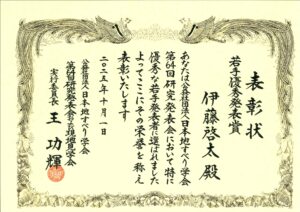 表彰状
若手優秀発表賞
伊藤啓太殿
あなたは公益社団法人日本地すべり学会
第64回研究発表会において特に
優秀な若手発表者に選ばれました
よってここにその栄誉を称え
表彰いたします
二〇二五年十月一日
公益社団法人日本地すべり学会
第64回研究発表会及び現地見学会
実行委員長 王功輝